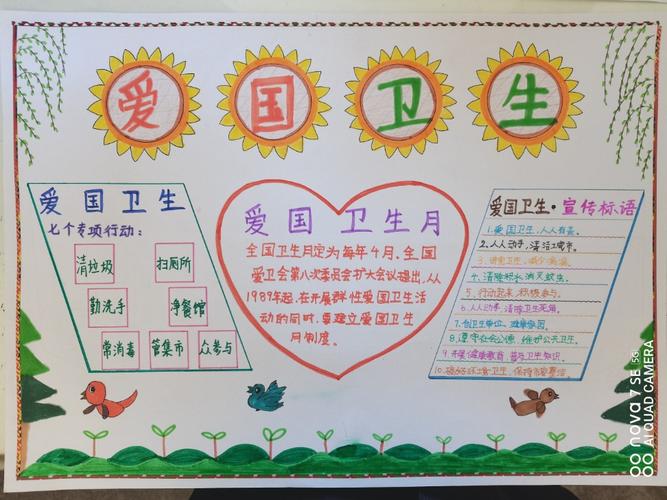 爱国卫生
爱国卫生
七个专项行动:
清垃圾
扫厕所
勤洗手
净餐馆
常消毒
管集市
众参与
爱国卫生月
全国卫生月定为每年4月,全国
爱卫会第八次委员会扩大会议提出,从
1989年起,在开展群性爱国卫生活
动的同时,要建立爱国卫生
月制度。
爱国卫生·宣传标语
1.爱国卫生,人人有责。
2.人人动手,清洁城市。
3.讲究卫生,减少疾病。
4.清除积水,消灭蚊虫。
5.行动起来,积极参与。
6.人人动手,清除卫生死角。
7.创卫生单位,
8.遵守社会公德,维护公共卫生。
9.开展健康教育,普及卫生知识。
10.搞好环境卫生,保持市容整洁。
nova 7 SE 5G
AI QUAD CAMERA